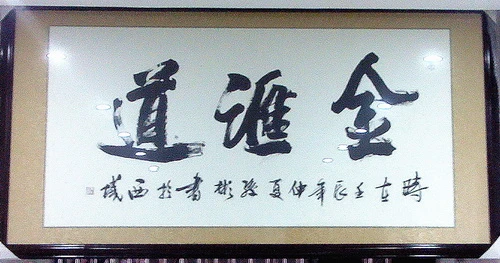 金滙道
時在壬辰年仲夏 彬書於西域